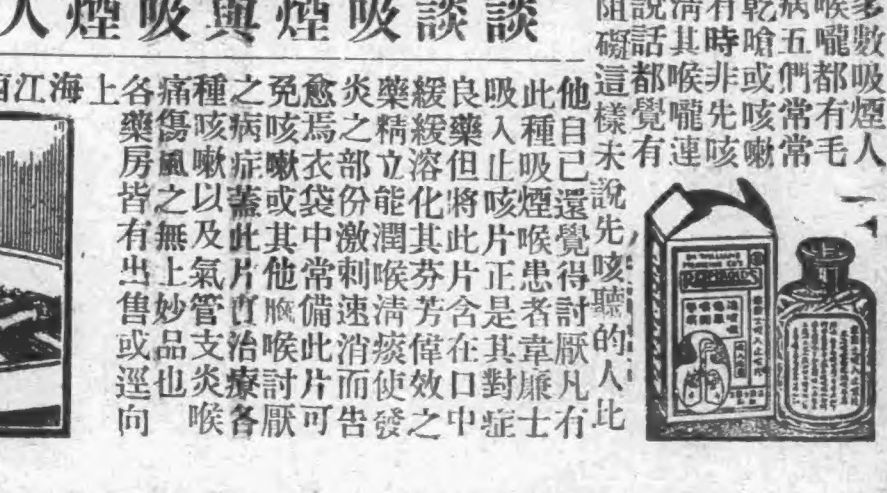 談談吸煙與吸煙人
多數吸煙人
喉嚨都有毛
病五們常常
乾嗆或咳嗽
有時非先咳
清其喉嚨連
說話都覺有
阻礙這樣未說先咳聽的人比
他自己還覺得討厭凡有
此種吸煙喉患者韋廉士
吸入止咳片正是其對症
良藥但將此片含在口中
緩緩溶化其芬芳偉效之
藥精立能潤喉清痰使發
炎之部份激刺速消而告
愈焉衣袋中常備此片可
免咳嗽或其他胸喉討厭
之病症蓋此片實治療各
種咳嗽以及氣管支炎喉
痛傷風之無上妙品也
各藥房皆有出售或逕向
上
海
江
西